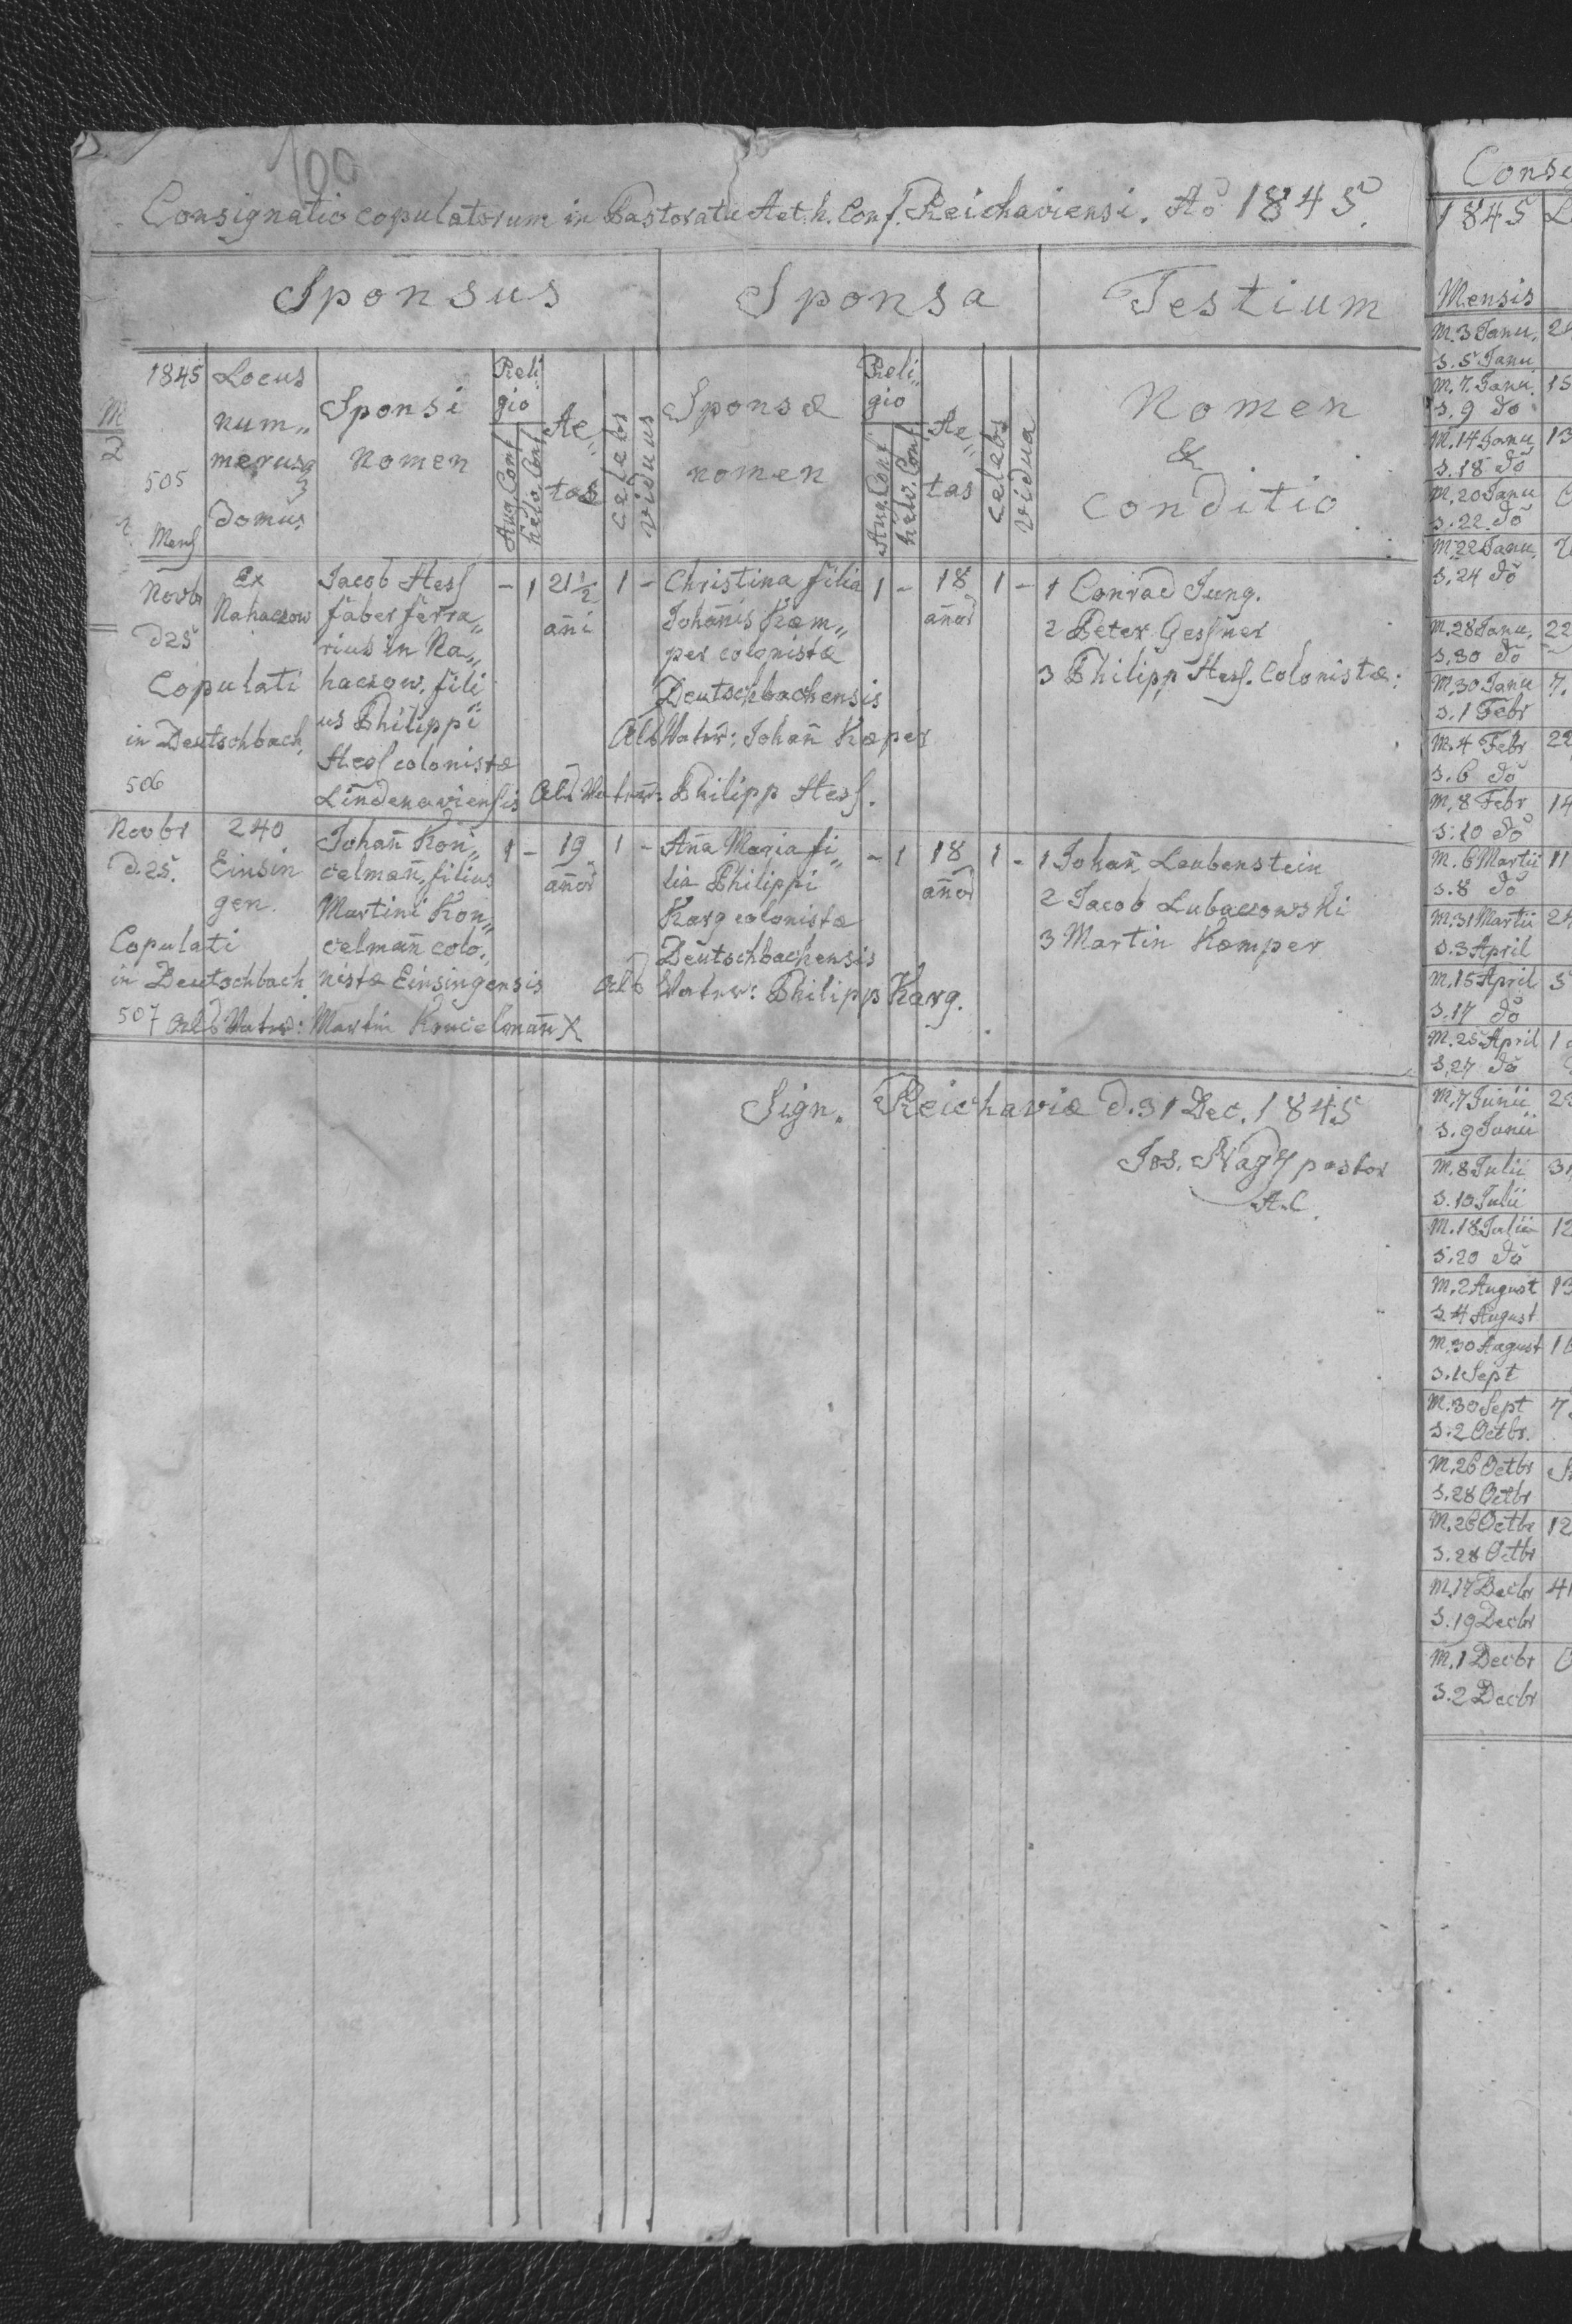 100
Consignatio copulatorum in Pastoratu A et. h. Conf. Reichaviensi. Aõ 1845.
Sponsus
Sponsa
Testium
1845
505
Mens
Locus
num„
merusq
domus
Sponsi
nomen
Reli„
gio
Aug. Conf
helv. Conf
Ae„
tas
celebs
viduus
Sponsæ
nomen
Reli„
gio
Aug. Conf
helv. Conf
Ae„
tas
celebs
vidua
Nomen
&
conditio
Novbr
d 25
Copulati
in Deutschbach
506
Ex
Nahaczow
Jacob Hess
faber ferra„
rius in Na„
haczow, fili
us Philippi
Hess colonistæ
Lindenaviensis
- 1 21½ 1 -
añi
Christina filia
Johañis Kæm„
per colonistæ
Deutschbachensis
Als Vater: Johañ Kæper
Als Vater: Philipp Hess.
1 - 18 1 -
añor
1 Conrad Jung.
2 Peter Gessner
3 Philipp Hess. Colonistæ.
Novbr
d. 25.
Copulati
in Deutschbach
507
240
Einsin
gen.
Johañ Kon„
celmañ, filius
Martini Kon„
celmañ colo„
nistæ Einsingensis
Als Vater: Martin Kunzelmañ X
1 - 19 1 -
añor
Aña Maria fi„
lia Philippi
Karg colonistæ
Deutschbachensis
Als Vater: Philipp Karg.
- 1 18 1 -
añor
1 Johañ Laubenstein
2 Jacob Lubaczowski
3 Martin Kæmper
Sign. Reichaviæ d. 31 Dec. 1845
Jos. Nagy pastor
A.C.
Consi
1845
Mensis
M. 3 Janu.
S. 5 Janu
M. 7. Janu. 15
S. 9 dõ
M. 14 Janu 13
S. 18 dõ
M. 20 Janu
S. 22. dõ
M. 22 Janu.
S. 24 dõ
M. 28 Janu. 22
S. 30 dõ
M. 30 Janu 7.
S. 1 Febr
M. 4 Febr 22
S. 6 dõ
M. 8 Febr 14
S. 10 dõ
M. 6 Martii 11
S. 8 dõ
M. 31 Martii
S. 3 April
M. 15 April 5
S. 17 dõ
M. 25 April 1
S. 27 dõ
M. 7 Junii 23
S. 9 Junii
M. 8 Julii 31
S. 10 Julii
M. 18 Julii 12
S. 20 dõ
M. 2 August 13
S. 4 August
M. 30 August
S. 1 Sept
M. 30 Sept 7
S. 2 Octbr.
M. 26 Octbr
S. 28 Octbr
M. 26 Octbr 12
S. 28 Octbr
M. 17 Decbr 41
S. 19 Decbr
M. 1 Decbr
S. 2 Decbr